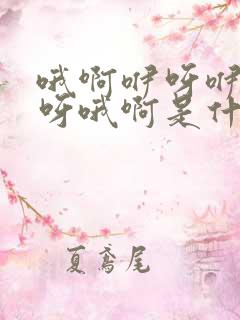 哦啊咿呀咿
呀哦啊是什
夏鸢尾